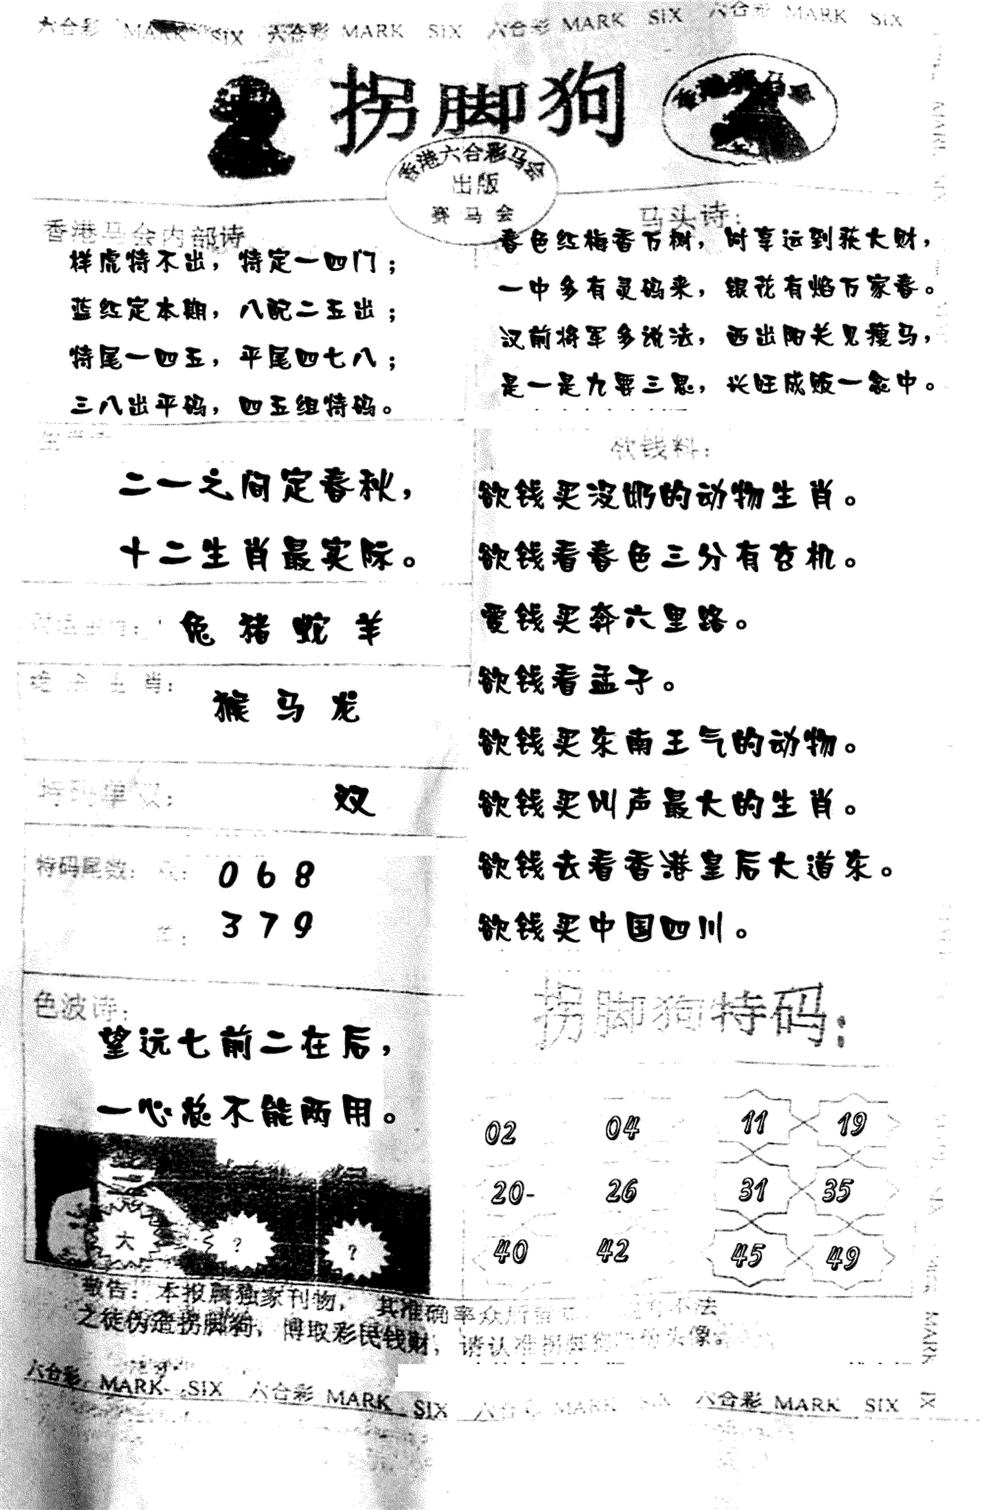 六合彩 MARK SIX 六合彩 MARK SIX 六合彩 MARK SIX 六合彩 MARK SIX
拐脚狗
香港赛马会
香港六合彩马会
出版
赛马会
香港马会内部诗
样虎特不出，特定一四门；
蓝红定本期，八配二五出；
特尾一四五，平尾四七八；
三八出平码，四五组特码。
马头诗：
春色红梅香万树，时享运到获大财，
一中多有灵码来，银花有焰万家春。
汉前将军多说法，西出阳关见瘦马，
是一是九要三思，兴旺成败一念中。
二一之间定春秋，
十二生肖最实际。
兔 猪 蛇 羊
生肖：
猴 马 龙
特码单双：
双
特码尾数：双：
0 6 8
单：
3 7 9
色波诗：
望远七前二在后，
一心总不能两用。
大
？
？
欲钱料：
欲钱买没奶的动物生肖。
欲钱看春色三分有玄机。
爱钱买奔六里路。
欲钱看孟子。
欲钱买东南王气的动物。
欲钱买叫声最大的生肖。
欲钱去看香港皇后大道东。
欲钱买中国四川。
拐脚狗特码：
02 04 11 19
20- 26 31 35
40 42 45 49
敬告：本报属独家刊物，其准确率众所 不法
之徒伪造拐脚狗，博取彩民钱财，请认准拐脚狗 头像
六合彩 MARK SIX 六合彩 MARK SIX 六合彩 MARK SIX 六合彩 MARK SIX
MARK